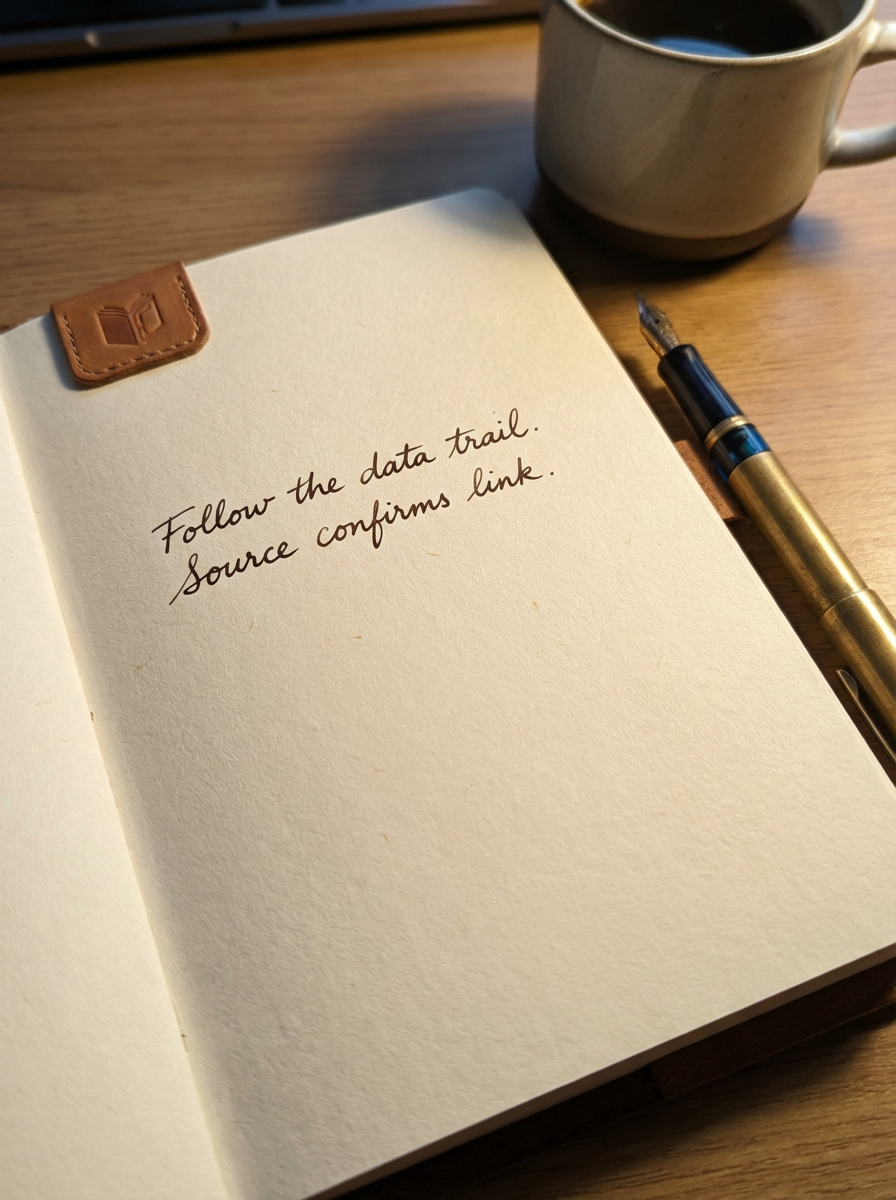 Follow the data trail.
Source confirms link.